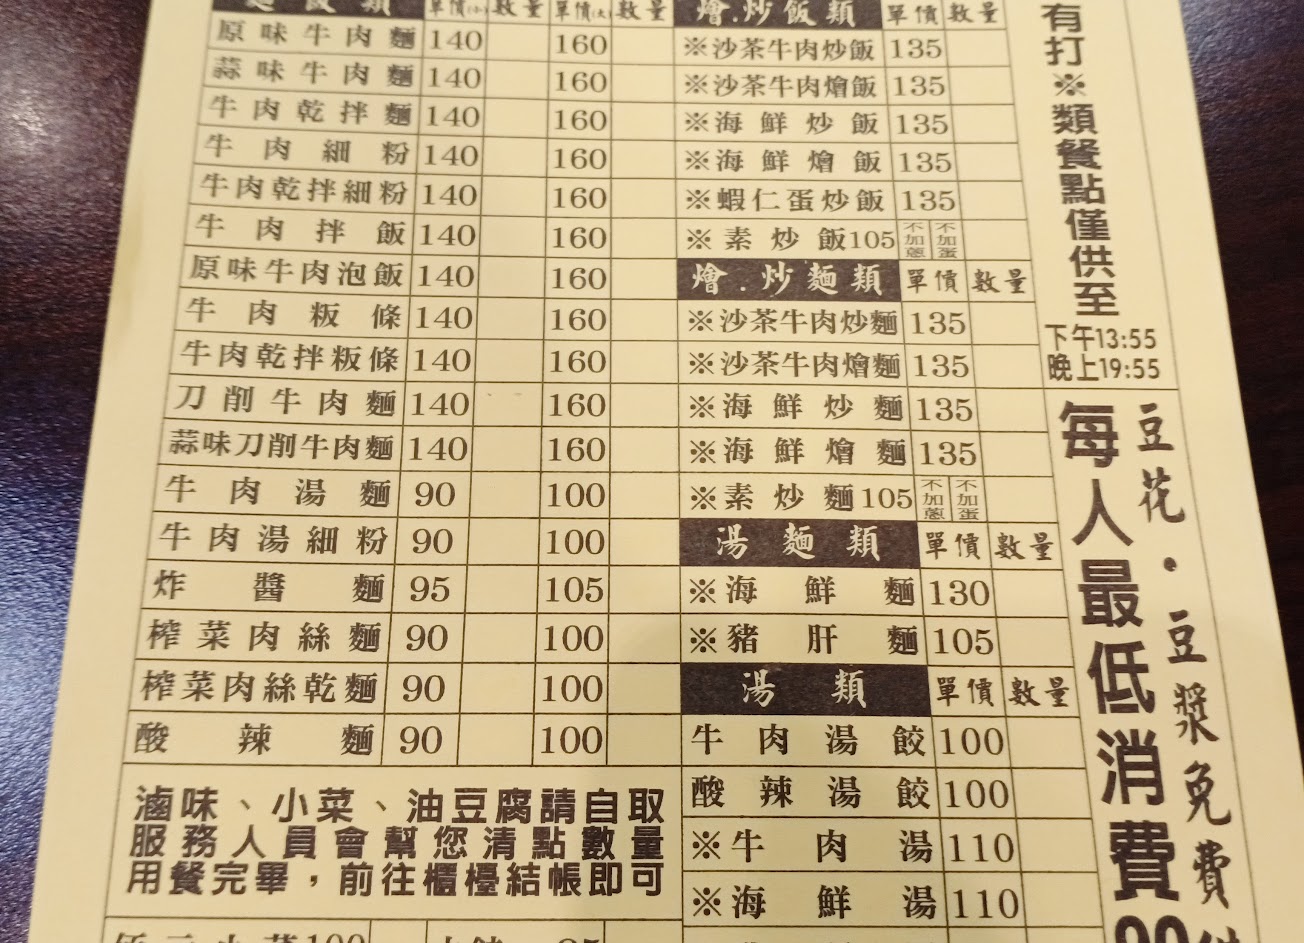 麵飯類 單價(小) 數量 單價(大) 數量
原味牛肉麵 140 160
蒜味牛肉麵 140 160
牛肉乾拌麵 140 160
牛肉細粉 140 160
牛肉乾拌細粉 140 160
牛肉拌飯 140 160
原味牛肉泡飯 140 160
牛肉粄條 140 160
牛肉乾拌粄條 140 160
刀削牛肉麵 140 160
蒜味刀削牛肉麵 140 160
牛肉湯麵 90 100
牛肉湯細粉 90 100
炸醬麵 95 105
榨菜肉絲麵 90 100
榨菜肉絲乾麵 90 100
酸辣麵 90 100
滷味、小菜、油豆腐請自取
服務人員會幫您清點數量
用餐完畢,前往櫃檯結帳即可
燴.炒飯類 單價 數量
※沙茶牛肉炒飯 135
※沙茶牛肉燴飯 135
※海鮮炒飯 135
※海鮮燴飯 135
※蝦仁蛋炒飯 135
※素炒飯105 不加蔥 不加蛋
燴.炒麵類 單價 數量
※沙茶牛肉炒麵 135
※沙茶牛肉燴麵 135
※海鮮炒麵 135
※海鮮燴麵 135
※素炒麵105 不加蔥 不加蛋
湯麵類 單價 數量
※海鮮麵 130
※豬肝麵 105
湯類 單價 數量
牛肉湯餃 100
酸辣湯餃 100
※牛肉湯 110
※海鮮湯 110
有打※類餐點僅供至
下午13:55
晚上19:55
豆花.豆漿免費供
每人最低消費90